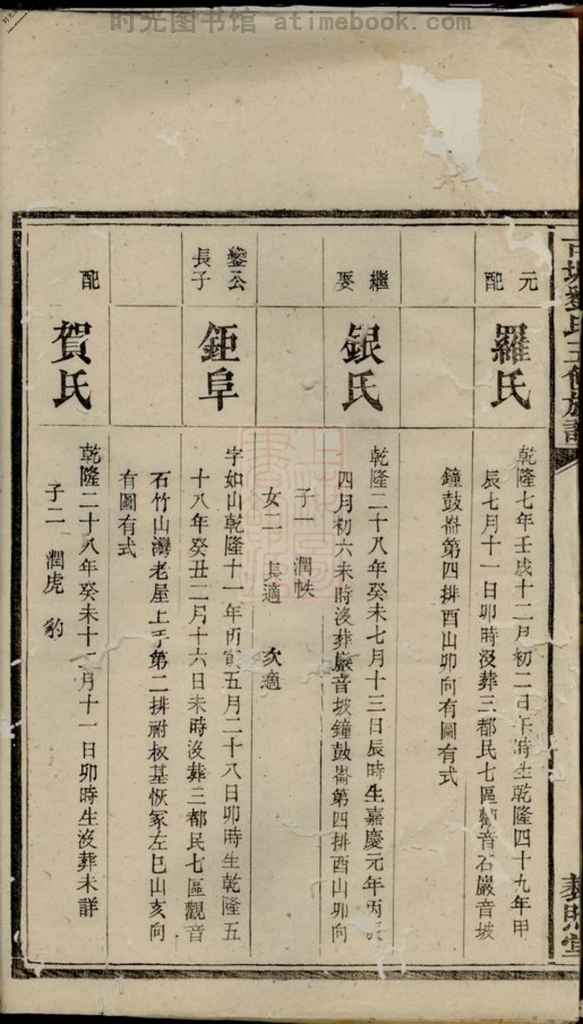 时光图书馆 - atimebook.com
氏三修族譜
元配
羅氏
乾隆七年壬戌十二月初二日午時生乾隆四十九年甲
辰七月十一日卯時沒葬三都民七區觀音石巖音坡
鐘鼓崙第四排酉山卯向有圖有式
繼娶
銀氏
乾隆二十八年癸未七月十三日辰時生嘉慶元年丙辰
四月初六未時沒葬巖音坡鐘鼓崙第四排酉山卯向
子一 潤帙
女二 長適 次適
鎣公長子
鉅阜
字如山乾隆十一年丙寅五月二十八日卯時生乾隆五
十八年癸丑二月十六日未時沒葬三都民七區觀音
石竹山灣老屋上手第二排祔椒基恢冢左巳山亥向
有圖有式
配
賀氏
乾隆二十八年癸未十二月十一日卯時生沒葬未詳
子二 潤虎 豹